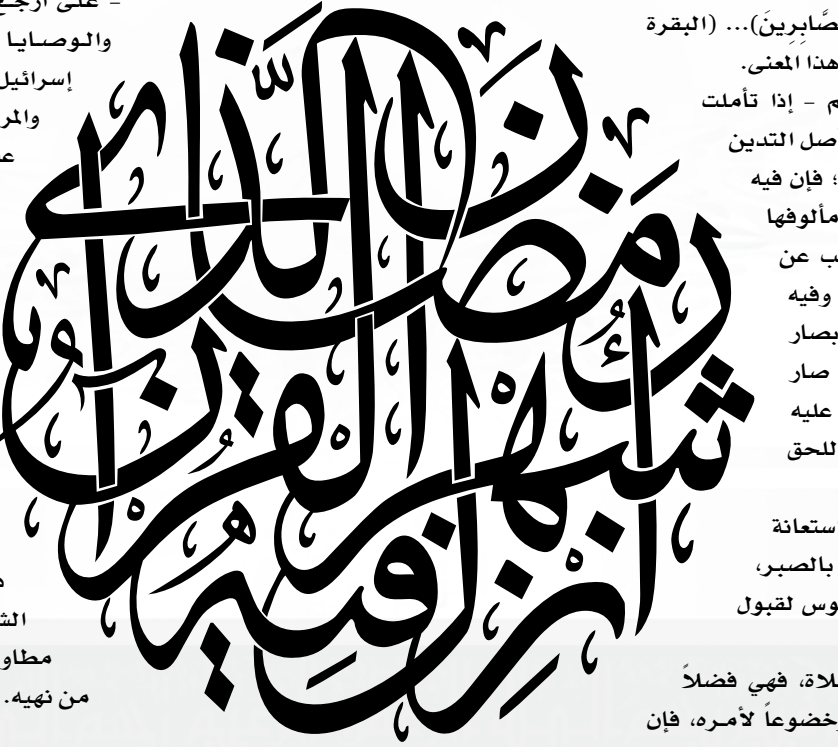 صَّابِرِينَ)... (البقرة
هذا المعنى.
م - إذا تأملت
صل التدين
؛ فإن فيه
مألوفها
ب عن
وفيه
بصار
صار
عليه
للحق
ستعانة
بالصبر،
وس لقبول
لاة، فهي فضلاً
خضوعاً لأمـره، فإن
شهر رمضان الذي أنزل فيه القرآن
والوصايا
إسرائيل
والمر
الش
مطاو
من نهيه.